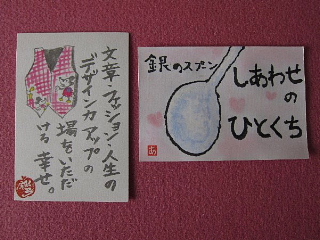 文章・ファッション・人生の
デザイン力アップの
場をいただ
ける幸せ。
銀のスプン
しあわせ
の
ひとくち